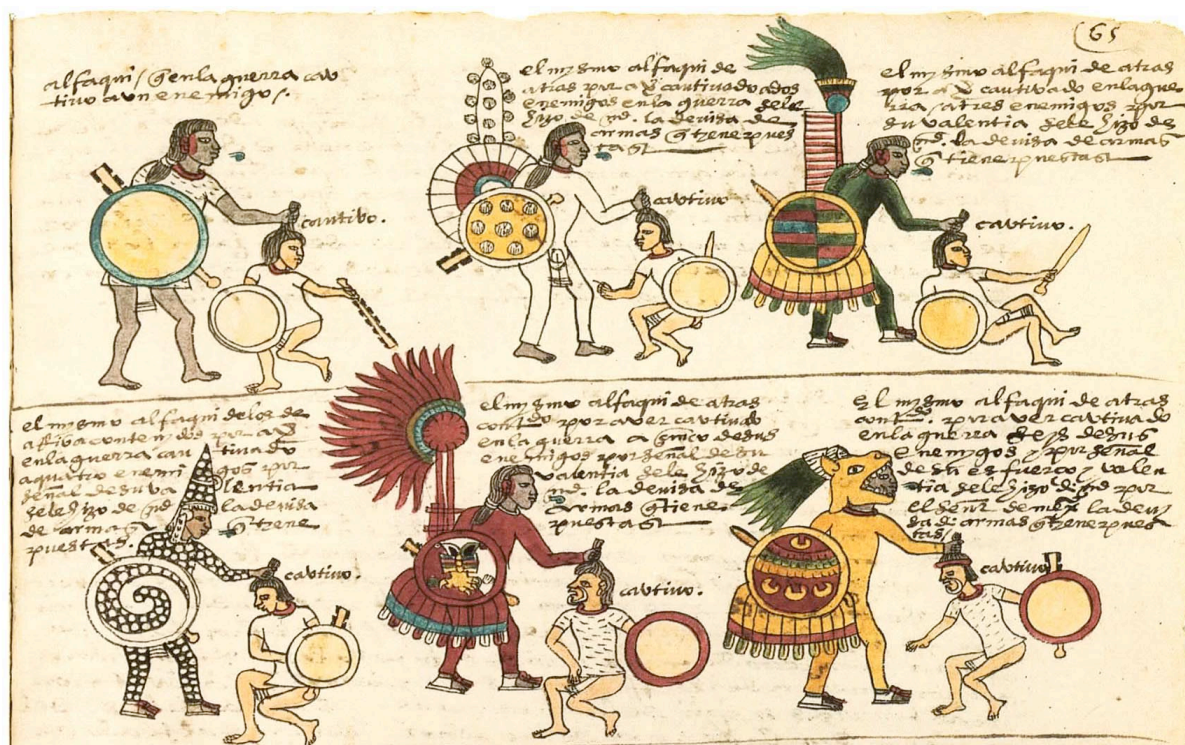 65
alfaqui / q̃ en la guerra cau
tivo a un enemigo /.
cautivo.
el mysmo alfaqui de
atras por a v̄ cautivado a dos
enemigos en la guerra se le
hizo de md. la devisa de
armas q̃ tiene pues
tas
cautivo
el mysmo alfaqui de atras
por a v̄ cautivado en la gue
rra / a tres enemigos por
su valentia se le hizo de
md. la devisa de armas
q̃ tiene puestas
cautivo.
el mysmo alfaqui de los de
arriba contenidos por a v̄
en la guerra cautivado
a quatro enemigos por
señal de su valentia
se le hizo de md. la devisa
de armas q̃ tiene
puestas.
cautivo.
el mysmo alfaqui de atras
contdo. por aver cautivado
en la guerra a sinco de sus
enemigos por señal de su
valentia se le hizo de
md. la devisa de
armas q̃ tiene
puestas
cautivo.
El mysmo alfaqui de atras
contdo. por aver cautivado
en la guerra seys de sus
enemigos y por señal
de su esfuerço y valen
tia se le hizo de md por
el señr. de mexco la devi
sa de armas q̃ tiene pues
tas /
cautivo.